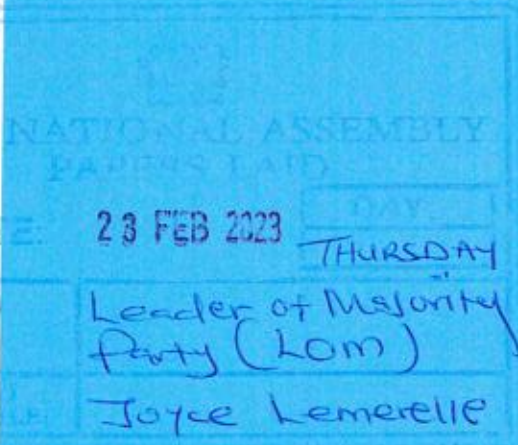 NATIONAL ASSEMBLY
PAPERS LAID
DAY
23 FEB 2023
THURSDAY
Leader of Majority
Party (LOM)
Joyce Lemerelle